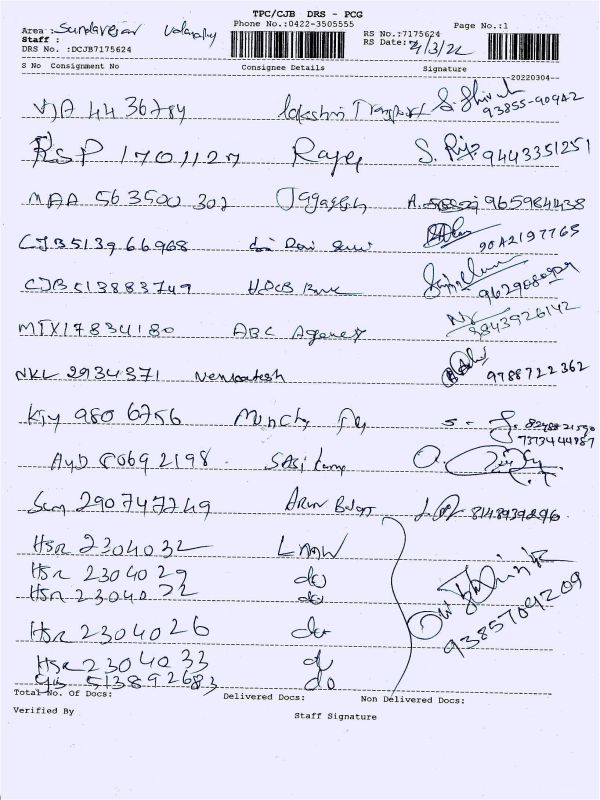 TPC/CJB DRS - PCG
Phone No.:0422-3505555
Area : Sundarapar
Page No.:1
Staff :
RS No.:7175624
DRS No. :DCJB7175624
RS Date: 4/3/22
S No Consignment No Consignee Details Signature
--20220304--
VJA 4436784 Lakshmi Transport S. Shiva
93855-90942
RSP 1701127 Rajej S. 9443351251
MAA 563500 302 Jagagesh A. 9659844438
CJB513966968 9042197765
CJB513883749 HDCB Bank 9629080909
MTX17834180 ABC Agancy 9843926142
NKL 2934371 Venkatesh 9788722362
KJy 980 6756 S - 8248821590
7373444987
Ayd 80692198 SASi kump
290747249 Arun 8148939296
HSR 2304032 LMW
HSR 2304029 do
HSR 2304022 do
HSR 2304026 do
9385709209
HSR 2304033 do
513892683 do
Total No. Of Docs: Delivered Docs: Non Delivered Docs:
Verified By
Staff Signature